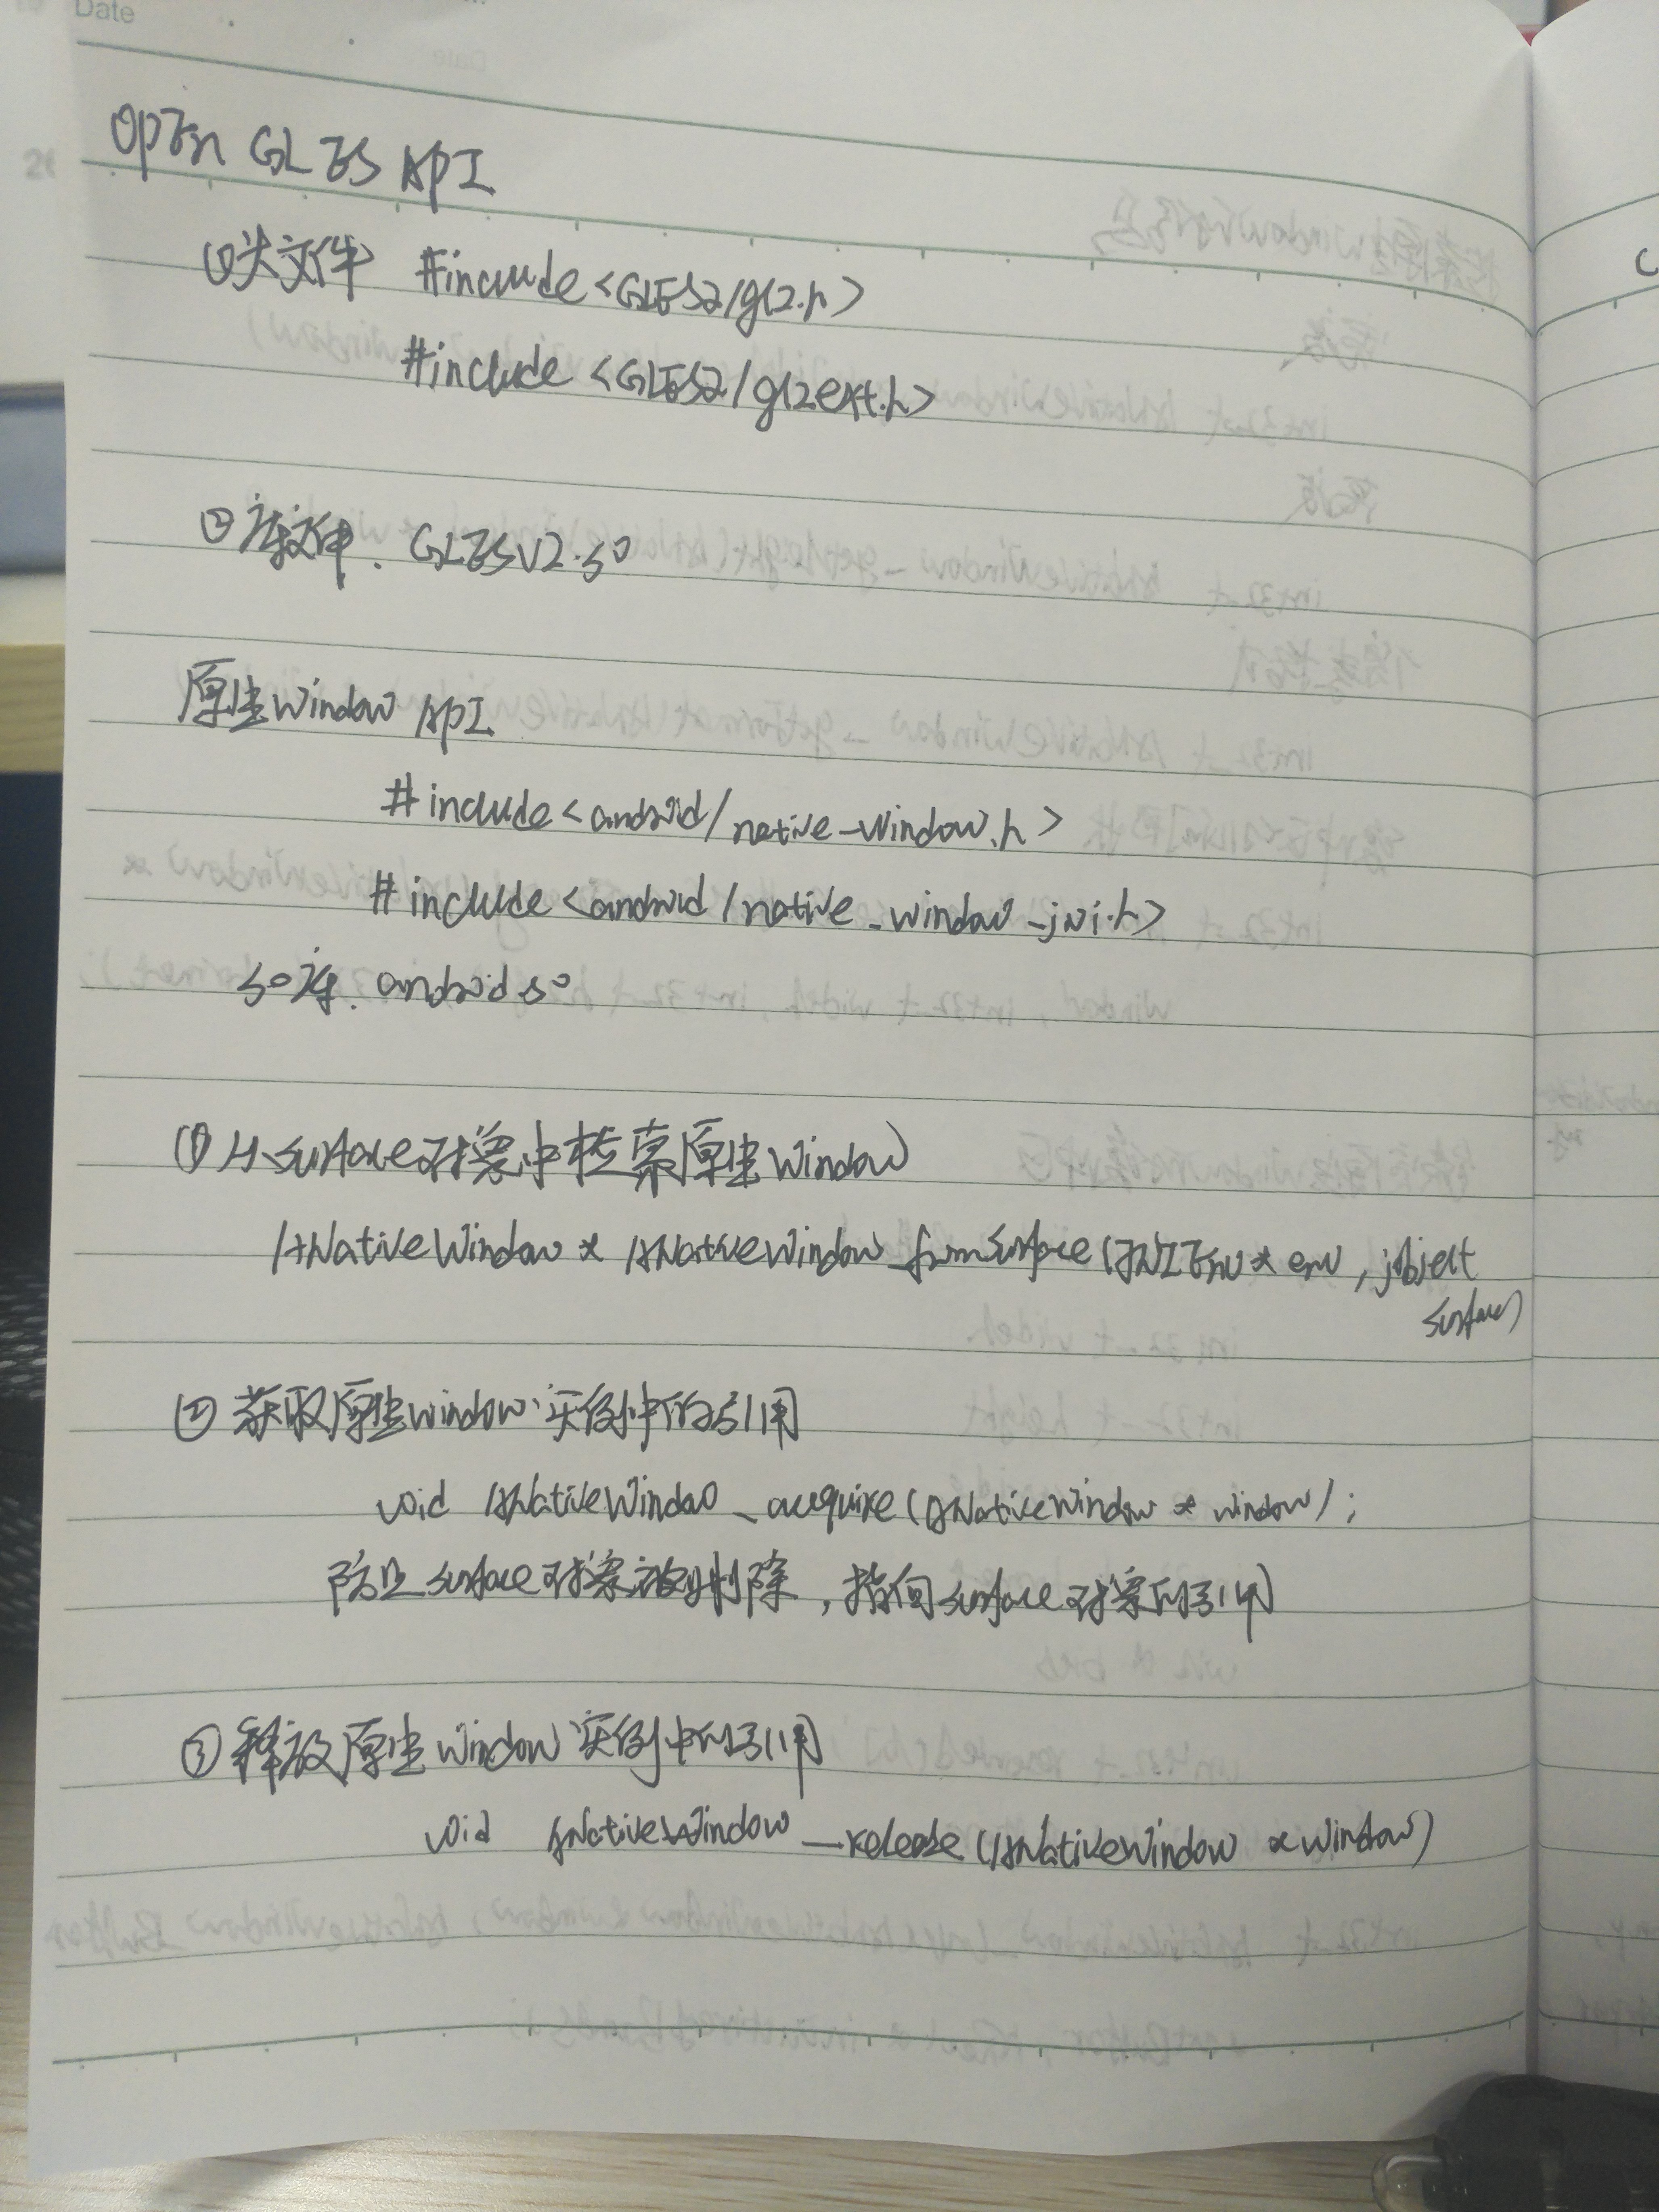 Date
Open GL ES API
①头文件 #include <GLES2/gl2.h>
#include <GLES2/gl2ext.h>
②库文件. GLESV2.so
原生window API
#include<android/native_window.h>
#include<android/native_window_jni.h>
so库. android so
① 从surface对象中检索原生window
ANativeWindow * ANativeWindow_fromSurface(JNIEnv * env, jobject
surface)
② 获取原生window实例中的引用
void ANativeWindow_acquire(ANativeWindow * window);
防止surface对象被删除,指向surface对象的引用
③ 释放原生window实例中的引用
void ANativeWindow_release(ANativeWindow *window)